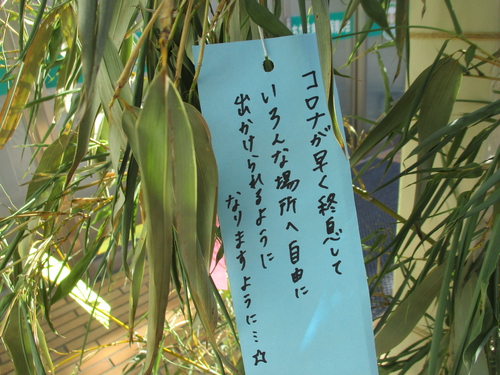 コロナが早く終息して
いろんな場所へ自由に
出かけられるように
なりますように…☆